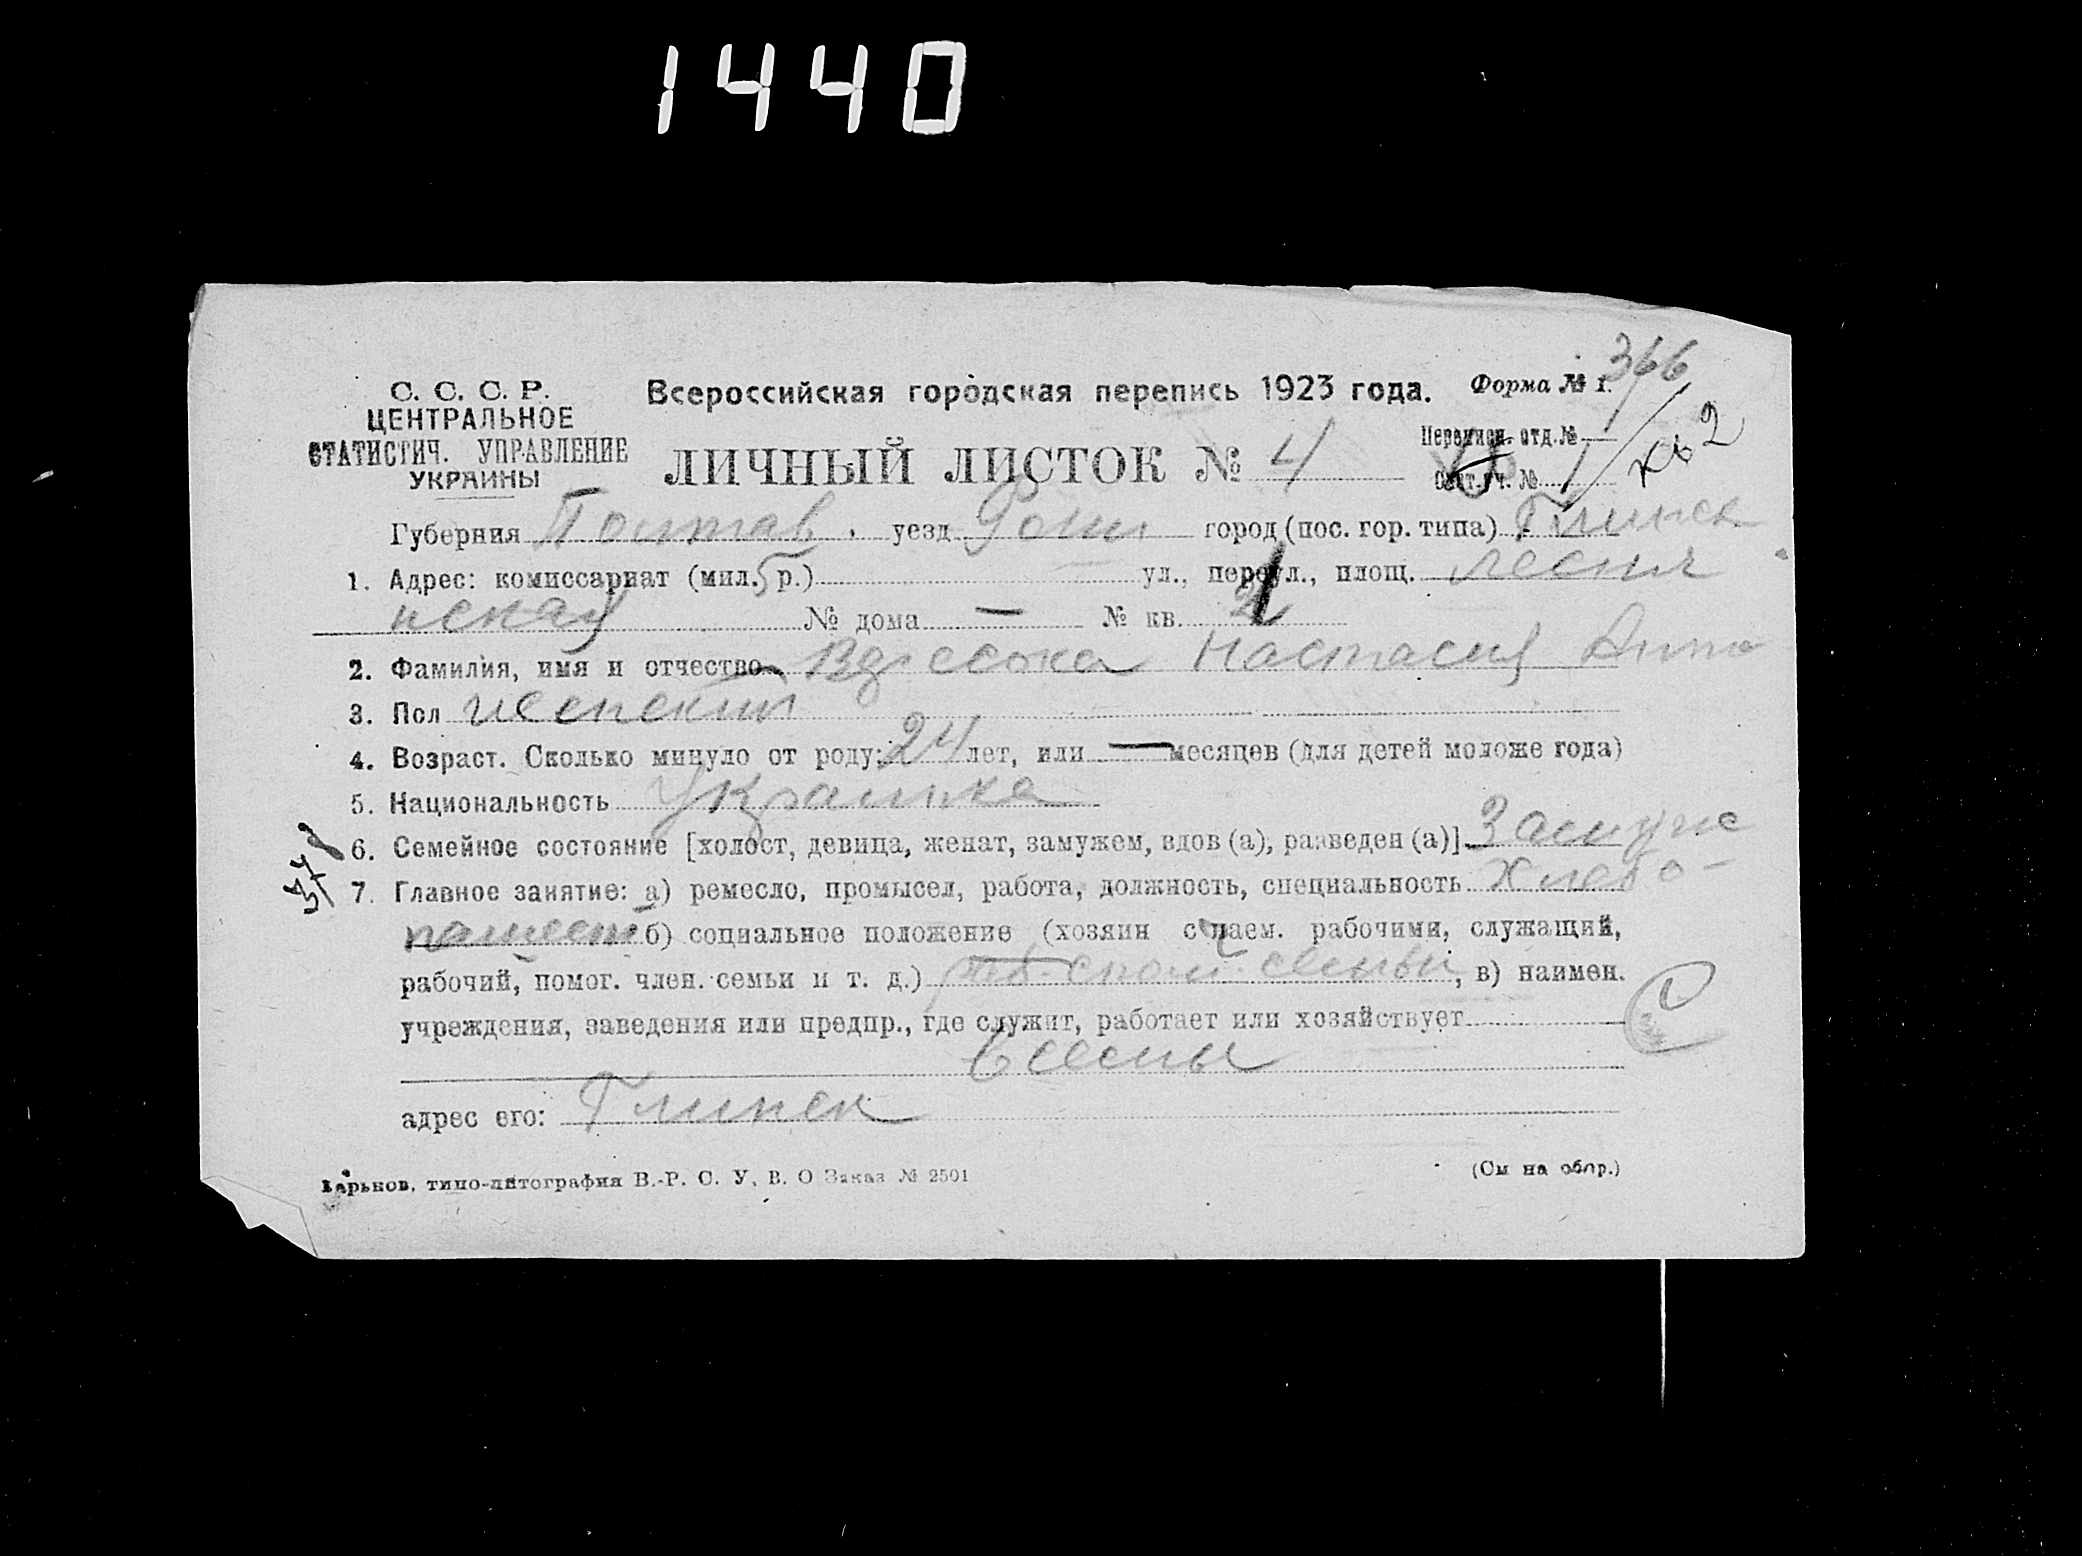 1440
366
С. С. С. Р.
ЦЕНТРАЛЬНОЕ
СТАТИСТИЧ. УПРАВЛЕНИЕ
УКРАИНЫ
Всероссийская городская перепись 1923 года. Форма № 1.
ЛИЧНЫЙ ЛИСТОК № 4
Переписн. отд. №
№ 1
кв 2
Губерния Полтав. уезд Ромн город (пос. гор. типа) Глинск
1. Адрес: комиссариат (мил. р.) ул., переул., площ.
нская № дома — № кв. 2
2. Фамилия, имя и отчество Настасия
3. Пол женский
4. Возраст. Сколько минуло от роду: 24 лет, или — месяцев (для детей моложе года)
5. Национальность Украинка
6. Семейное состояние [холост, девица, женат, замужем, вдов (а), разведен (а)] Замужне
7. Главное занятие: а) ремесло, промысел, работа, должность, специальность Хлебо-
пашест б) социальное положение (хозяин с наем. рабочими, служащий,
рабочий, помог. член. семьи и т. д.) семьи, в) наимен.
учреждения, заведения или предпр., где служит, работает или хозяйствует
адрес его: Глинск
Харьков, типо-литография В.-Р. С. У. В. О Заказ № 2501
(См на обор.)